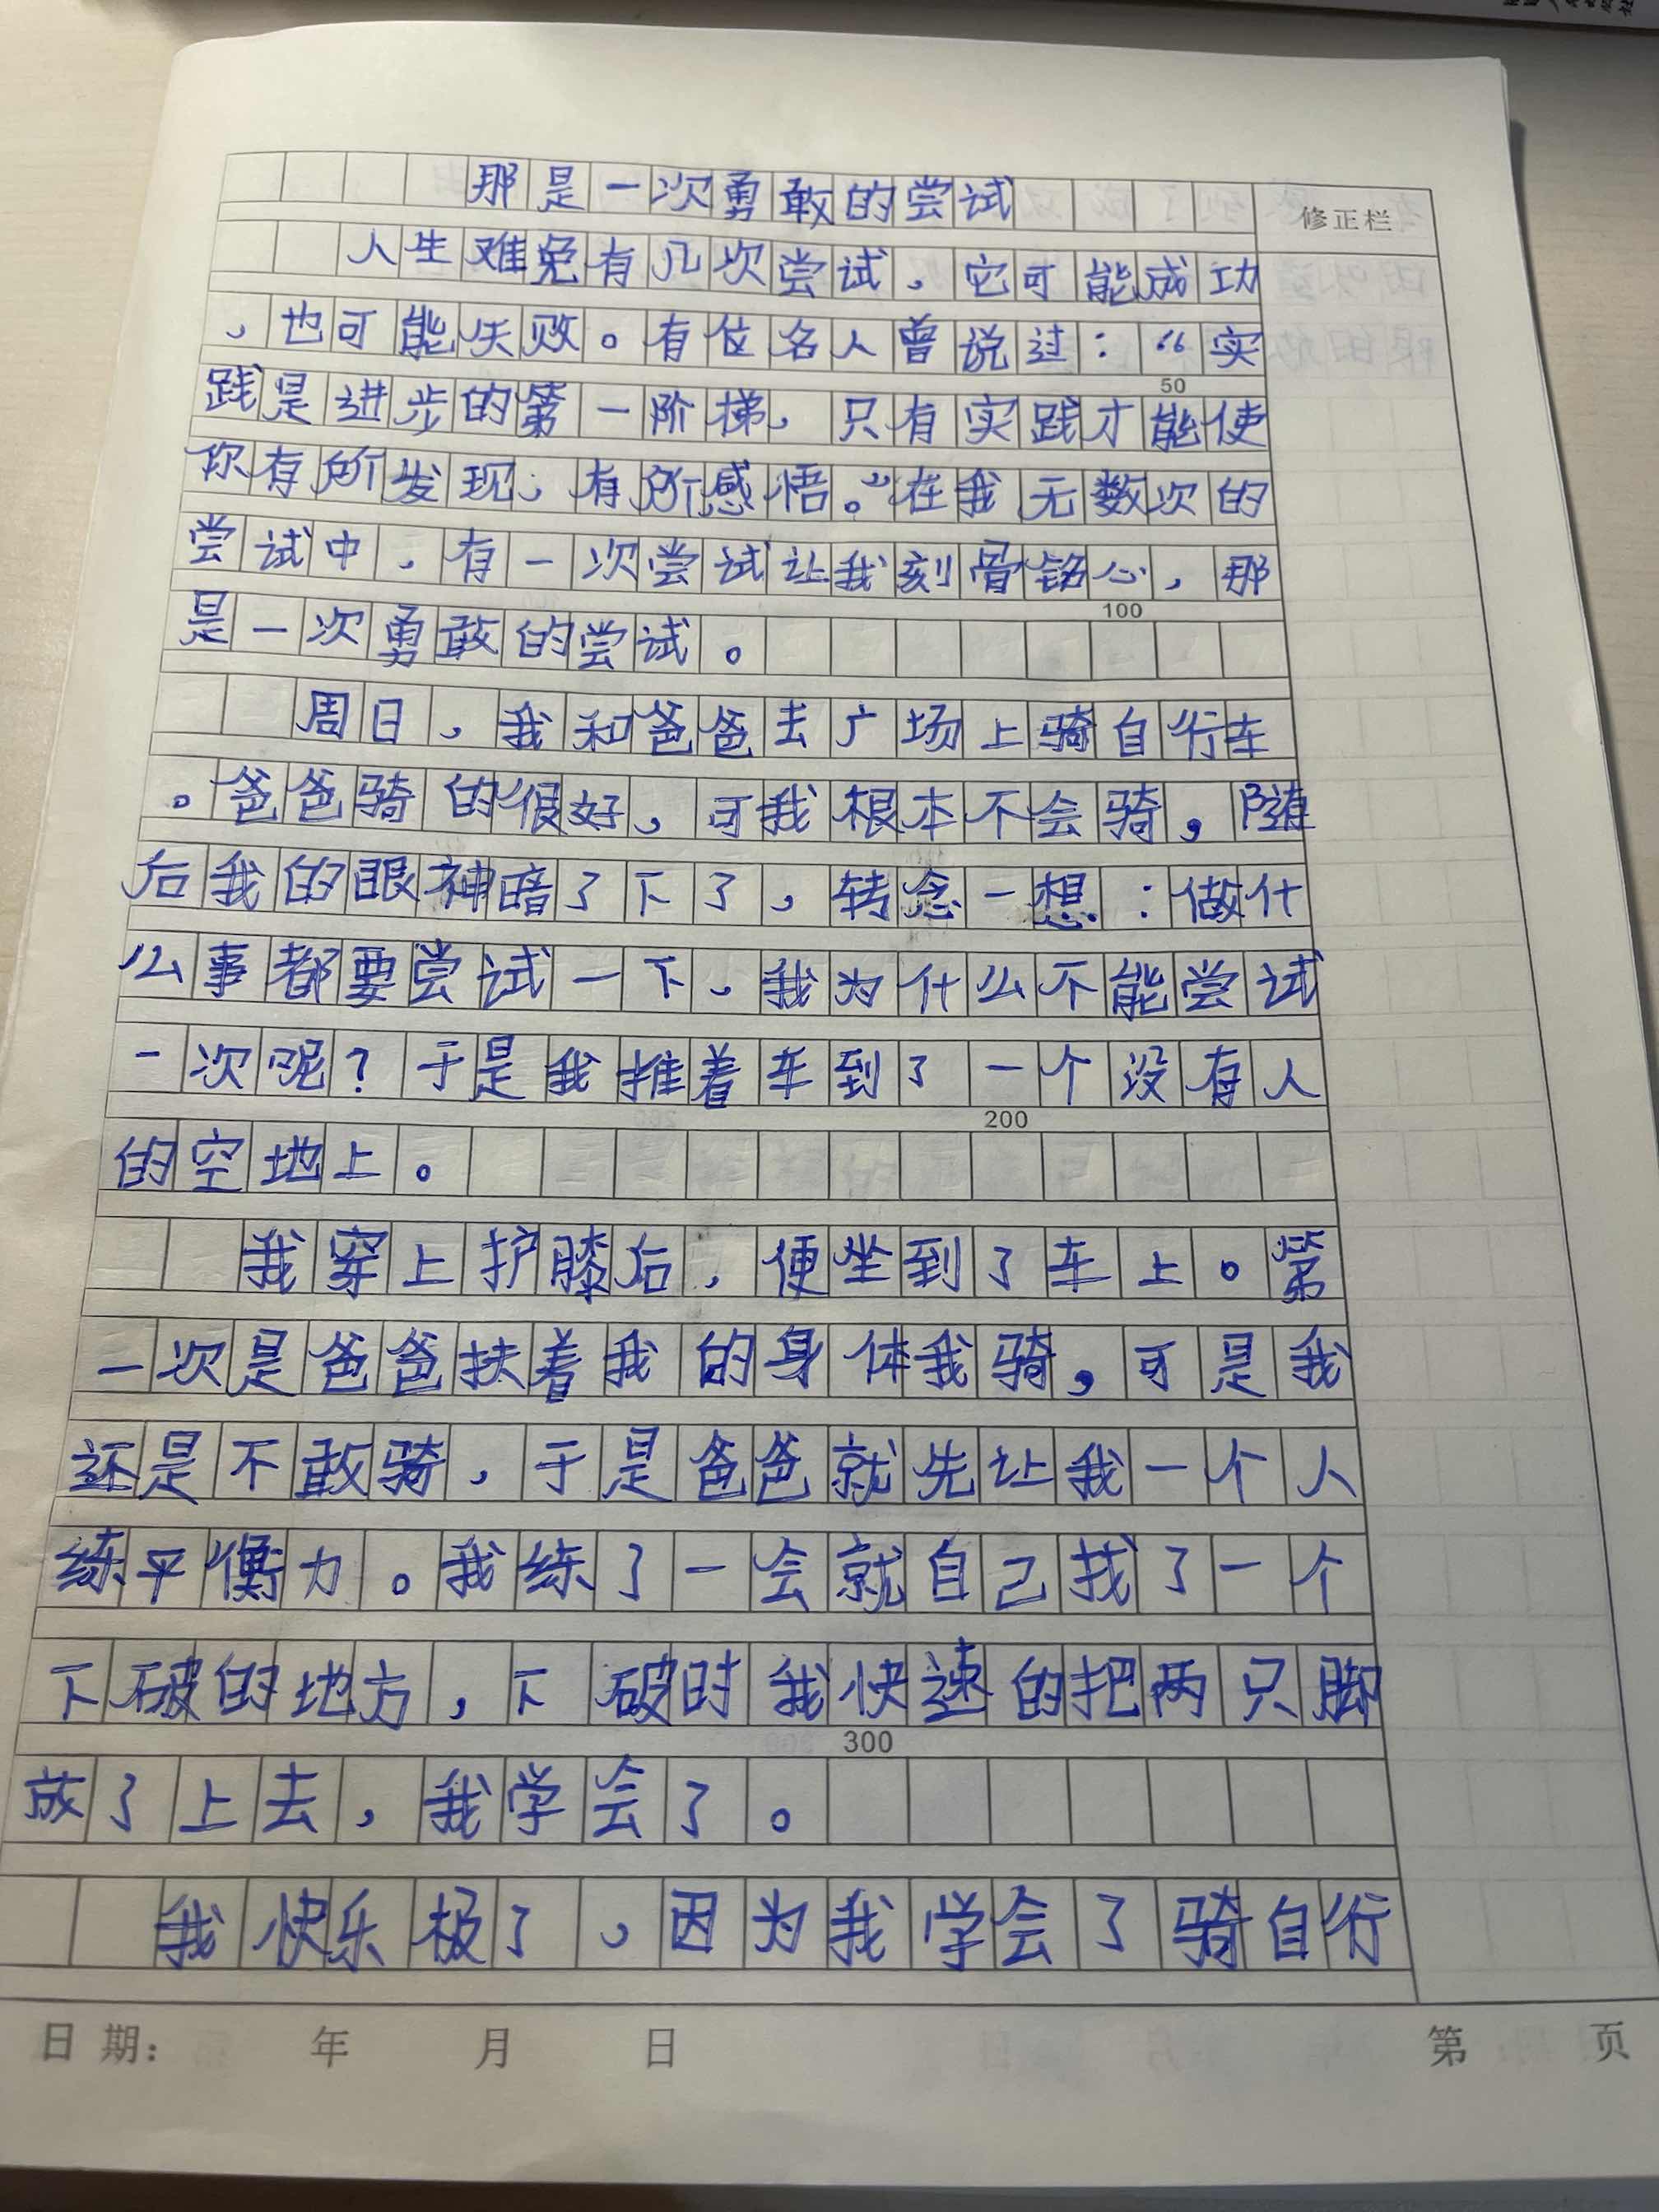 那是一次勇敢的尝试
修正栏
人生难免有几次尝试，它可能成功
，也可能失败。有位名人曾说过：“实
50
践是进步的第一阶梯，只有实践才能使
你有所发现，有所感悟。”在我无数次的
尝试中，有一次尝试让我刻骨铭心，那
100
是一次勇敢的尝试。
周日，我和爸爸去广场上骑自行车
。爸爸骑的很好，可我根本不会骑，随
后我的眼神暗了下了，转念一想：做什
么事都要尝试一下，我为什么不能尝试
一次呢？于是我推着车到了一个没有人
200
的空地上。
我穿上护膝后，便坐到了车上。第
一次是爸爸扶着我的身体我骑，可是我
还是不敢骑，于是爸爸就先让我一个人
练平衡力。我练了一会就自己找了一个
下破的地方，下破时我快速的把两只脚
300
放了上去，我学会了。
我快乐极了，因为我学会了骑自行
日期： 年 月 日 第 页